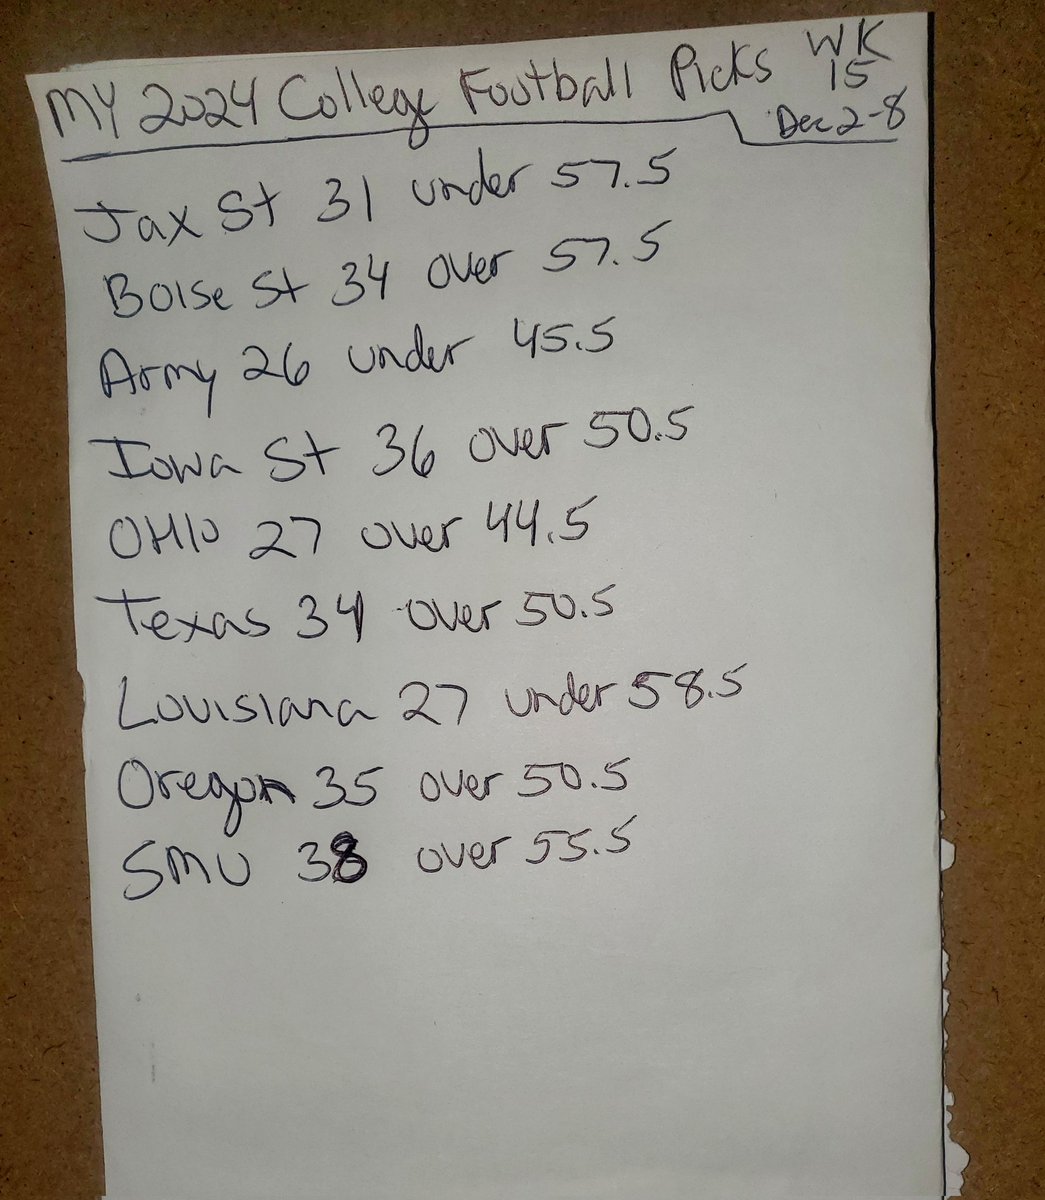 MY 2024 College Football Picks WK 15
Dec 2-8
Jax St 31 under 57.5
Boise St 34 over 57.5
Army 26 under 45.5
Iowa St 36 over 50.5
OHIO 27 over 44.5
Texas 34 over 50.5
Louisiana 27 under 58.5
Oregon 35 over 50.5
SMU 38 over 55.5